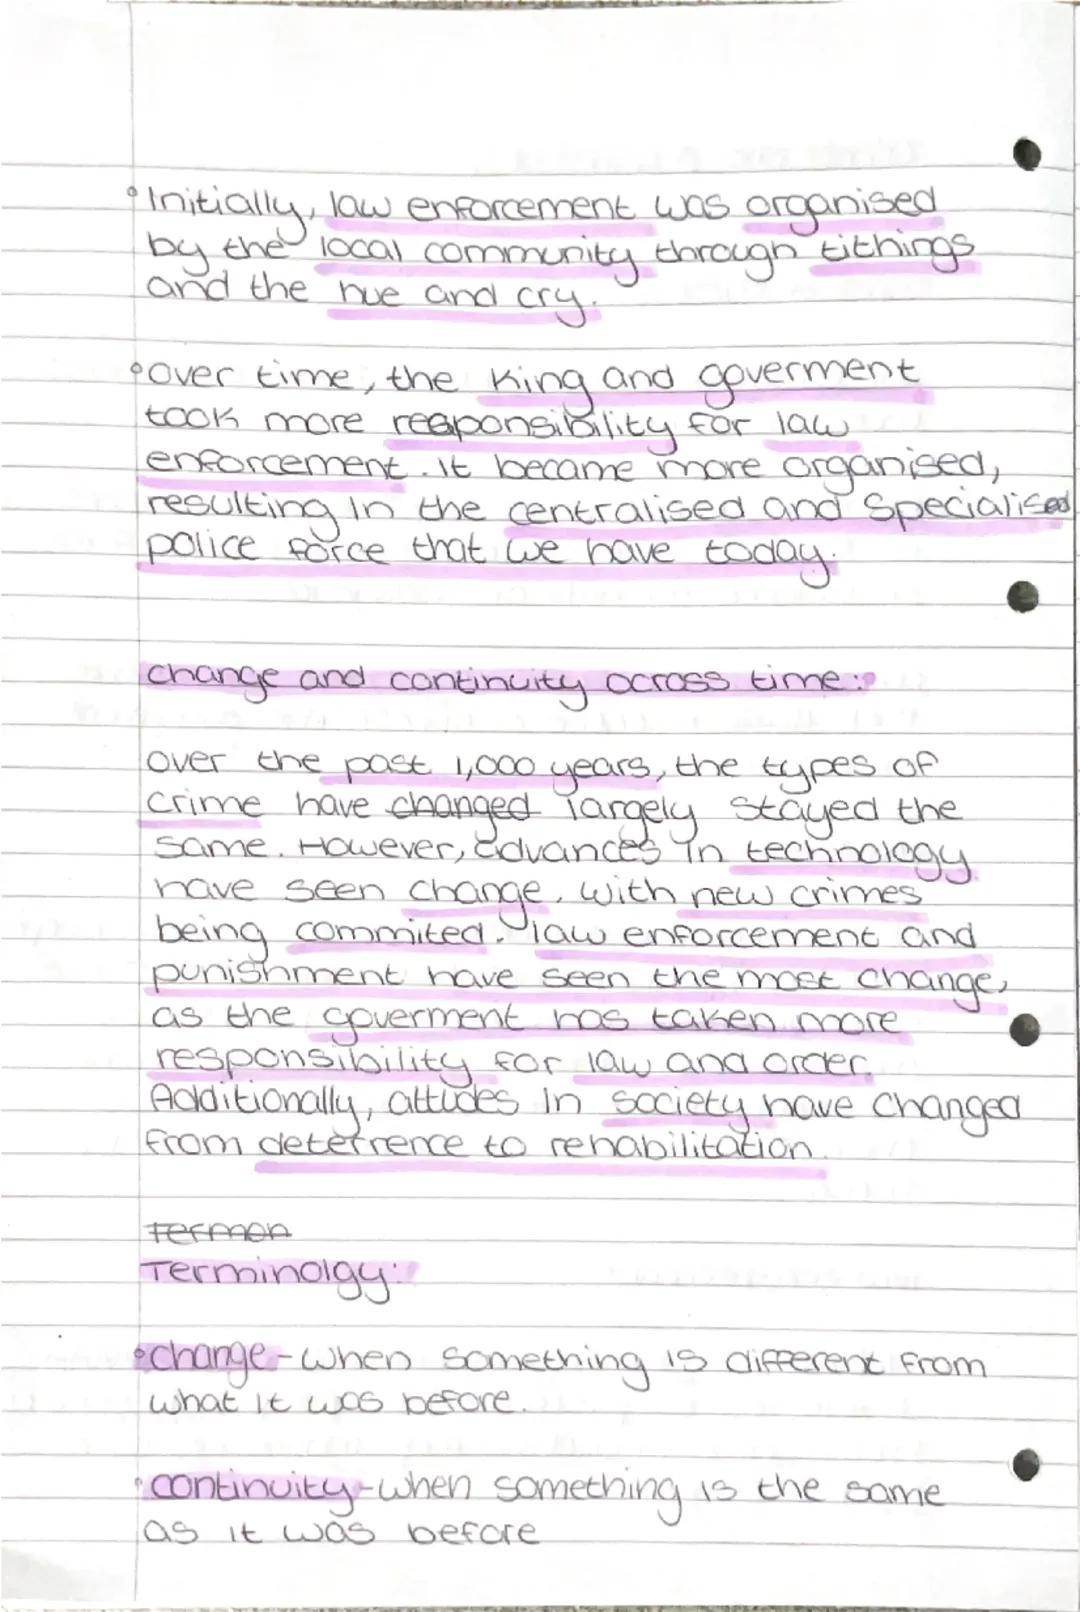 ° Initially, law enforcement was organised
by the local community through tithings
and the hue and cry.
° Over time, the King and goverment
took more responsibility for law
enforcement. It became more organised,
resulting in the centralised and Specialised
police force that we have today.
change and continuity across time:
over the past 1,000 years, the types of
crime have changed largely stayed the
same. However, advances in technology
have seen change, with new crimes
being commited. law enforcement and
punishment have seen the most change,
as the goverment has taken more
responsibility for law and order.
Additionally, attudes in society have changed
from deterrence to rehabilitation.
Termon
Terminolgy:
° change - when something is different from
what it was before.
° continuity - when something is the same
as it was before